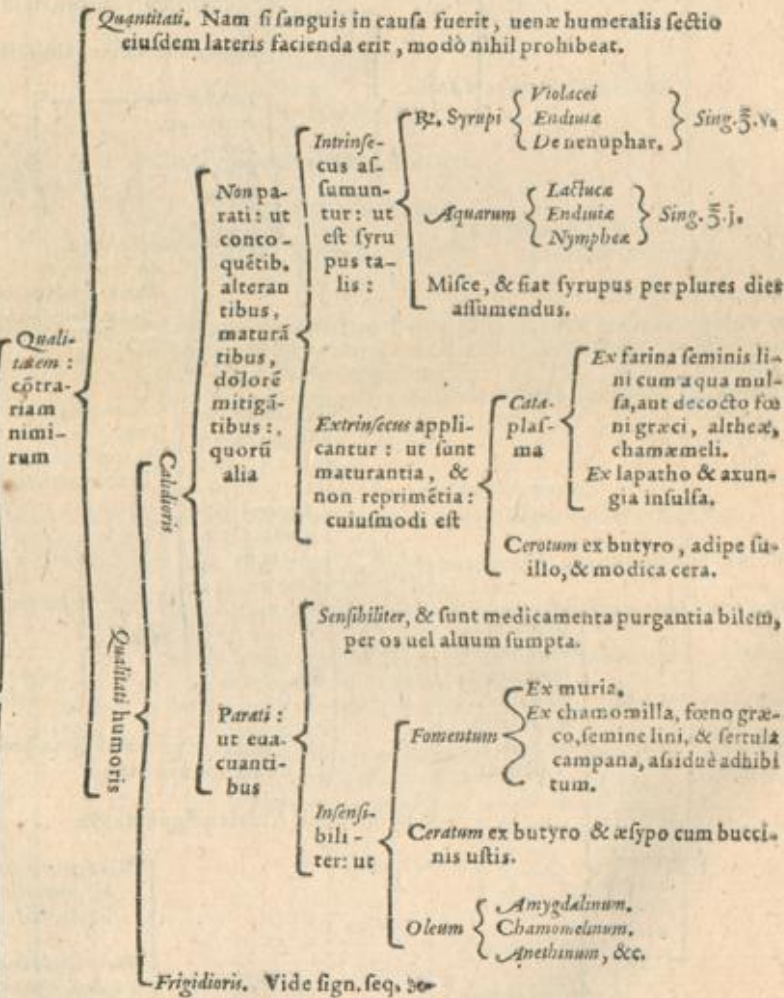 Quantitati. Nam ſi ſanguis in cauſa fuerit, uenæ humeralis ſectio
eiuſdem lateris facienda erit, modò nihil prohibeat.
Quali-
tatem:
cõtra-
riam
nimi-
rum
Qualitati humoris
Calidioris
Non pa-
rati: ut
conco-
quẽtib.
alteran
tibus,
maturã
tibus,
dolorẽ
mitigã-
tibus:,
quorũ
alia
Intrinſe-
cus aſ-
ſumun-
tur: ut
eſt ſyru
pus ta-
lis:
℞. Syrupi
Violacei
Endiuiæ
De nenuphar.
Sing. ℥. v.
Aquarum
Lactucæ
Endiuiæ
Nympheæ
Sing. ℥. j.
Miſce, & fiat ſyrupus per plures dies
aſſumendus.
Extrinſecus appli-
cantur: ut ſunt
maturantia, &
non reprimẽtia:
cuiuſmodi eſt
Cata-
plaſ-
ma
Ex farina ſeminis li-
ni cum aqua mul-
ſa, aut decocto fœ
ni græci, altheæ,
chamæmeli.
Ex lapatho & axun-
gia inſulſa.
Cerotum ex butyro, adipe ſu-
illo, & modica cera.
Parati:
ut eua-
cuanti-
bus
Senſibiliter, & ſunt medicamenta purgantia bilem,
per os uel aluum ſumpta.
Inſenſi-
bili-
ter: ut
Fomentum
Ex muria.
Ex chamomilla, fœno græ-
co, ſemine lini, & ſertula
campana, aſsiduè adhibi
tum.
Ceratum ex butyro & œſypo cum bucci-
nis uſtis.
Oleum
Amygdalinum.
Chamomelinum.
Anethinum, &c.
Frigidioris. Vide ſign. ſeq.